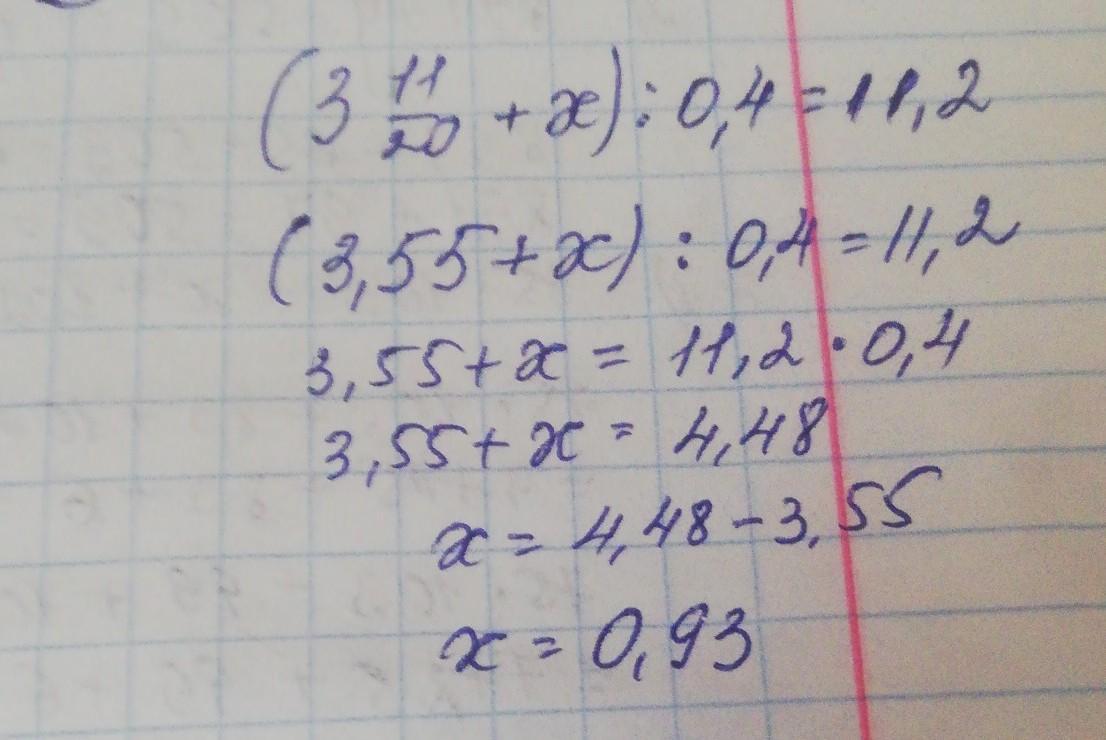 (3 11/20 + x) : 0,4 = 11,2
(3,55 + x) : 0,4 = 11,2
3,55 + x = 11,2 · 0,4
3,55 + x = 4,48
x = 4,48 - 3,55
x = 0,93